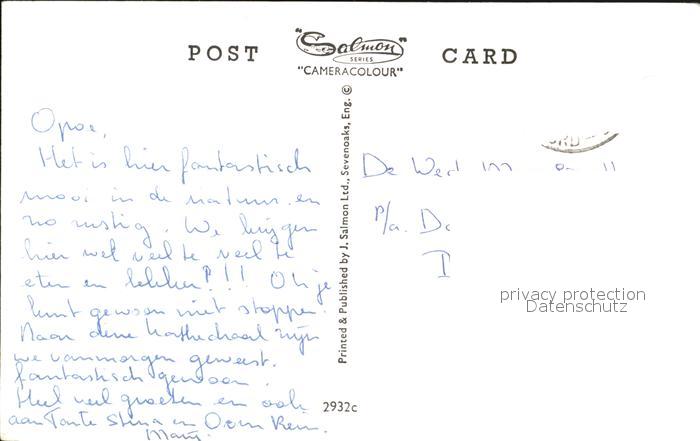 POST CARD
"Salmon"
SERIES
"CAMERACOLOUR"
Printed & Published by J. Salmon Ltd., Sevenoaks, Eng. ©
Opoe,
Het is hier fantastisch
mooi in de natuur en
zo rustig. We krijgen
hier wel veel te veel te
eten en lekker!!!! O
kunt gewoon niet stoppen.
Naar deze kathedraal zijn
we vanmorgen geweest.
fantastisch gewoon.
Heel veel groeten en ook
aan Tante Stina en Oom Rem.
De Wed
p/a. D
privacy protection
Datenschutz
2932c